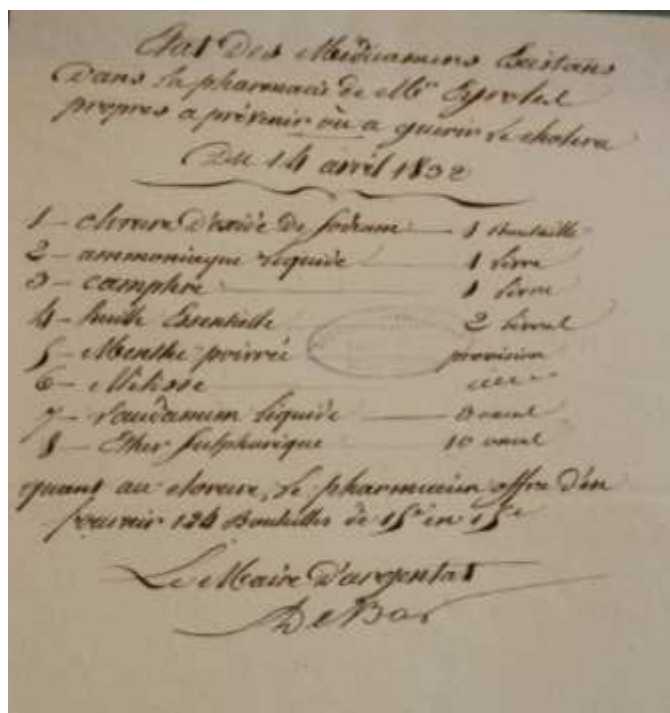 Etat Des Médicamens Existans
Dans la pharmacie de Mr Eyrolel
propres a prévenir où a guerir le cholera
Du 14 avril 1832
1 – clorure D'oxide de sodium — 1 Bouteille
2 – ammoniaque liquide — 1 livre
3 – camphre — 1 livre
4 – huille Essentielle — 2 livres
5 – Menthe poivrée — provision
6 – Mélisse
7 – Laudanum liquide — onces
8 – Ether sulphurique — 10 onces
quant au clorure, le pharmacien offre D'en
fournir 124 Bouteilles de 15 en 15
Le Maire D'argentat
DeBar